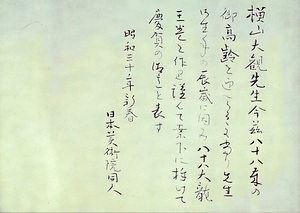 横山大観先生今茲八十八歳の
御高齢を迎へらるゝあり先生
御生年の辰歳に因み八十八大龍
王巻を作り謹して案下に捧げて
慶賀の微意を表す
昭和三十一年新春
日本美術院同人